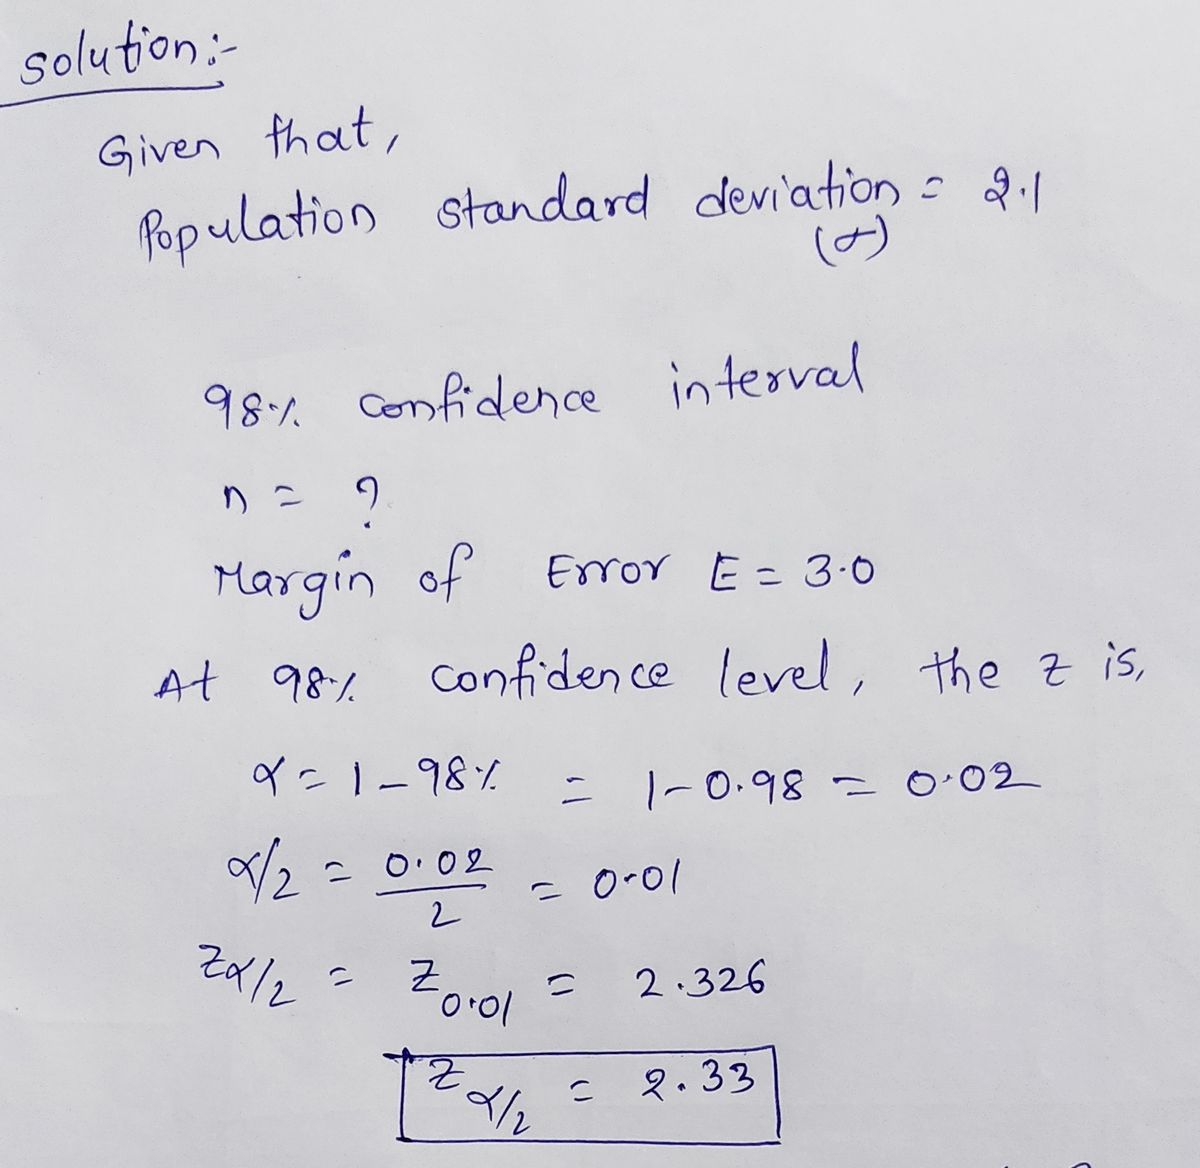 Solution:-
Given that,
Population standard deviation = 2.1
(σ)
98% confidence interval
n = ?
Margin of Error E = 3.0
At 98% confidence level, the z is,
α = 1 - 98% = 1 - 0.98 = 0.02
α/2 = 0.02/2 = 0.01
Zα/2 = Z0.01 = 2.326
Zα/2 = 2.33